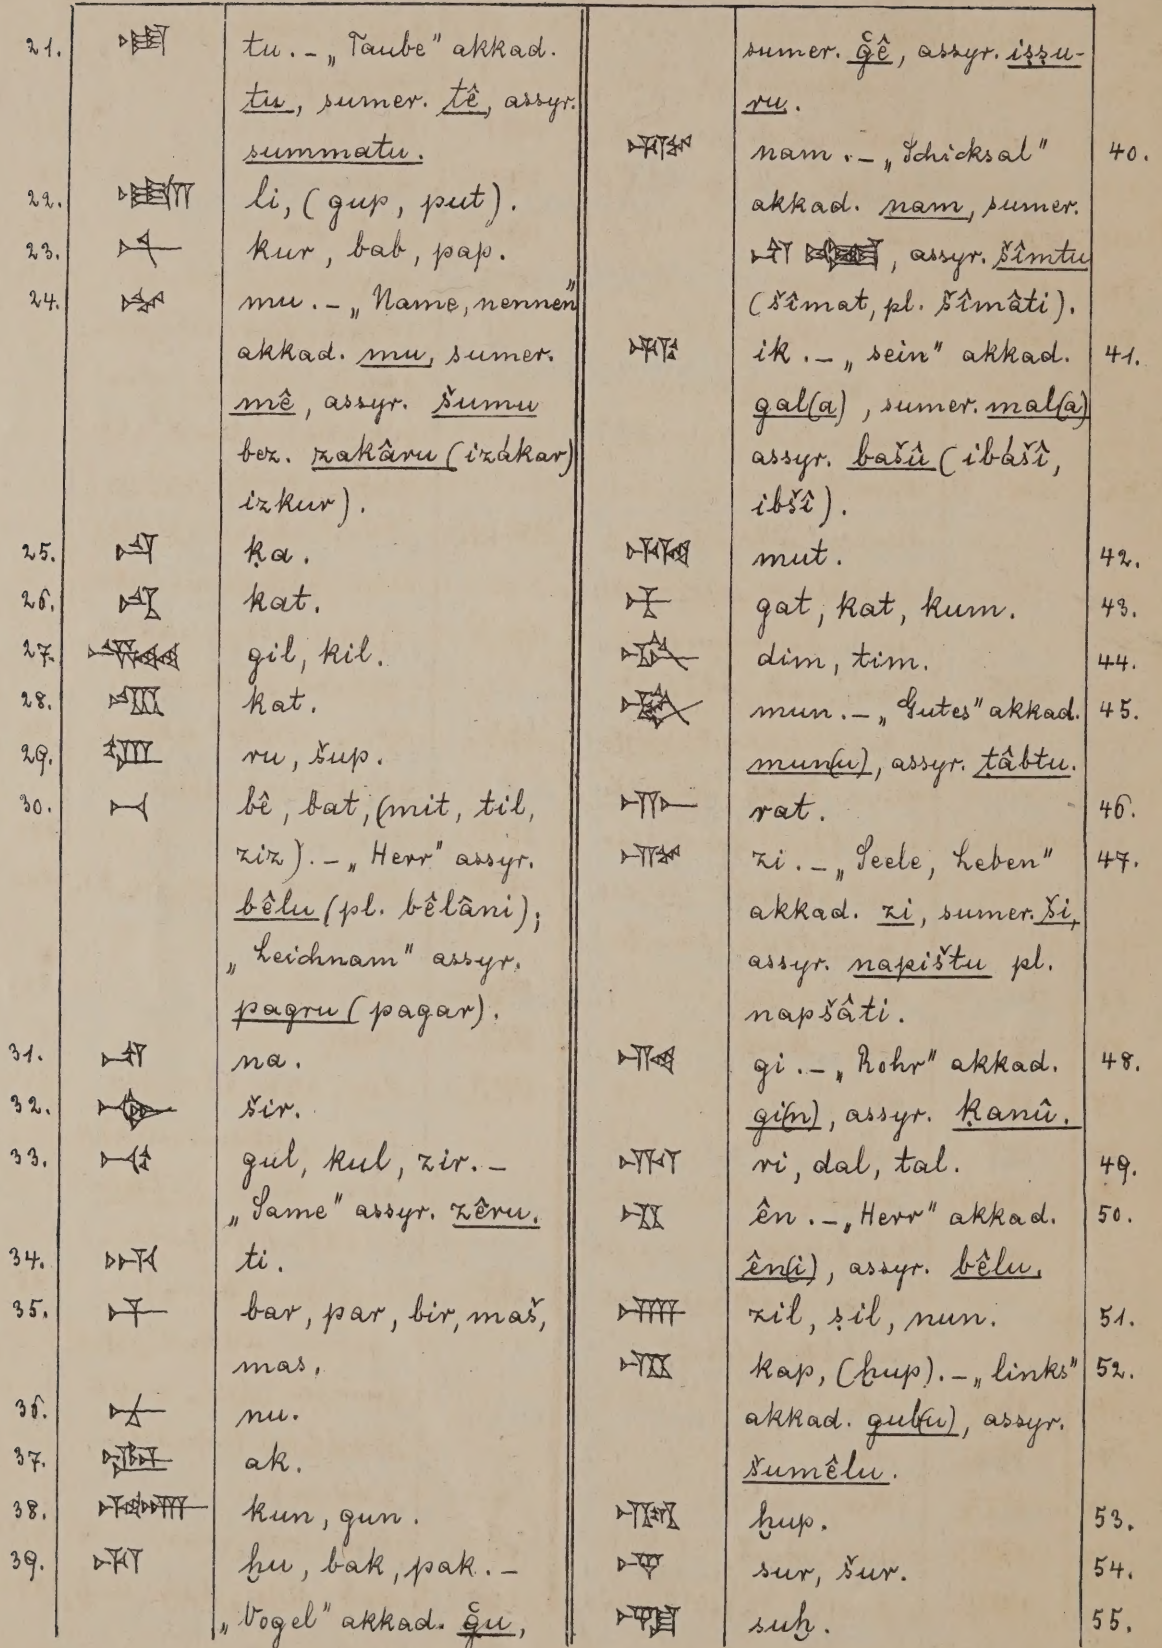 21. 𒌅 tu. – „Taube" akkad.
tu, sumer. tê, assyr.
summatu.
22. 𒇷 li, (gup, put).
23. 𒉽 kur, bab, pap.
24. 𒈬 mu. – „Name, nennen"
akkad. mu, sumer.
mê, assyr. šumu
bez. zakâru (izákar,
izkur).
25. 𒋡 ḳa.
26. kat.
27. 𒄃 gil, kil.
28. kat.
29. 𒊒 ru, šup.
30. 𒁁 bê, bat, (mit, til,
ziz). – „Herr" assyr.
bêlu (pl. bêlâni);
„Leichnam" assyr.
pagru (pagar).
31. 𒈾 na.
32. 𒋓 šir.
33. 𒆰 gul, kul, zir. –
„Same" assyr. zêru.
34. 𒋾 ti.
35. 𒁇 bar, par, bir, maš,
mas.
36. 𒉡 nu.
37. 𒀝 ak.
38. 𒆲 kun, gun.
39. 𒄷 ḫu, bak, pak. –
„Vogel" akkad. ğu,
sumer. ğê, assyr. iṣṣu-
ru.
𒉆 nam. – „Schicksal" 40.
akkad. nam, sumer.
𒈾, assyr. šîmtu
(šîmat, pl. šîmâti).
𒅅 ik. – „sein" akkad. 41.
gal(a), sumer. mal(a)
assyr. bašû (ibášî,
ibšî).
mut. 42.
𒃰 gat, kat, kum. 43.
𒁴 dim, tim. 44.
𒁵 mun. – „Gutes" akkad. 45.
mun(u), assyr. ṭâbtu.
rat. 46.
𒍣 zi. – „Seele, Leben" 47.
akkad. zi, sumer. ši,
assyr. napištu pl.
napšâti.
𒄀 gi. – „Rohr" akkad. 48.
gi(n), assyr. ḳanû.
𒊑 ri, dal, tal. 49.
𒂗 ên. – „Herr" akkad. 50.
ên(i), assyr. bêlu.
𒉣 zil, ṣil, nun. 51.
𒆏 kap, (ḫup). – „links" 52.
akkad. gub(u), assyr.
šumêlu.
𒄸 ḫup. 53.
𒋩 sur, šur. 54.
suḫ. 55.